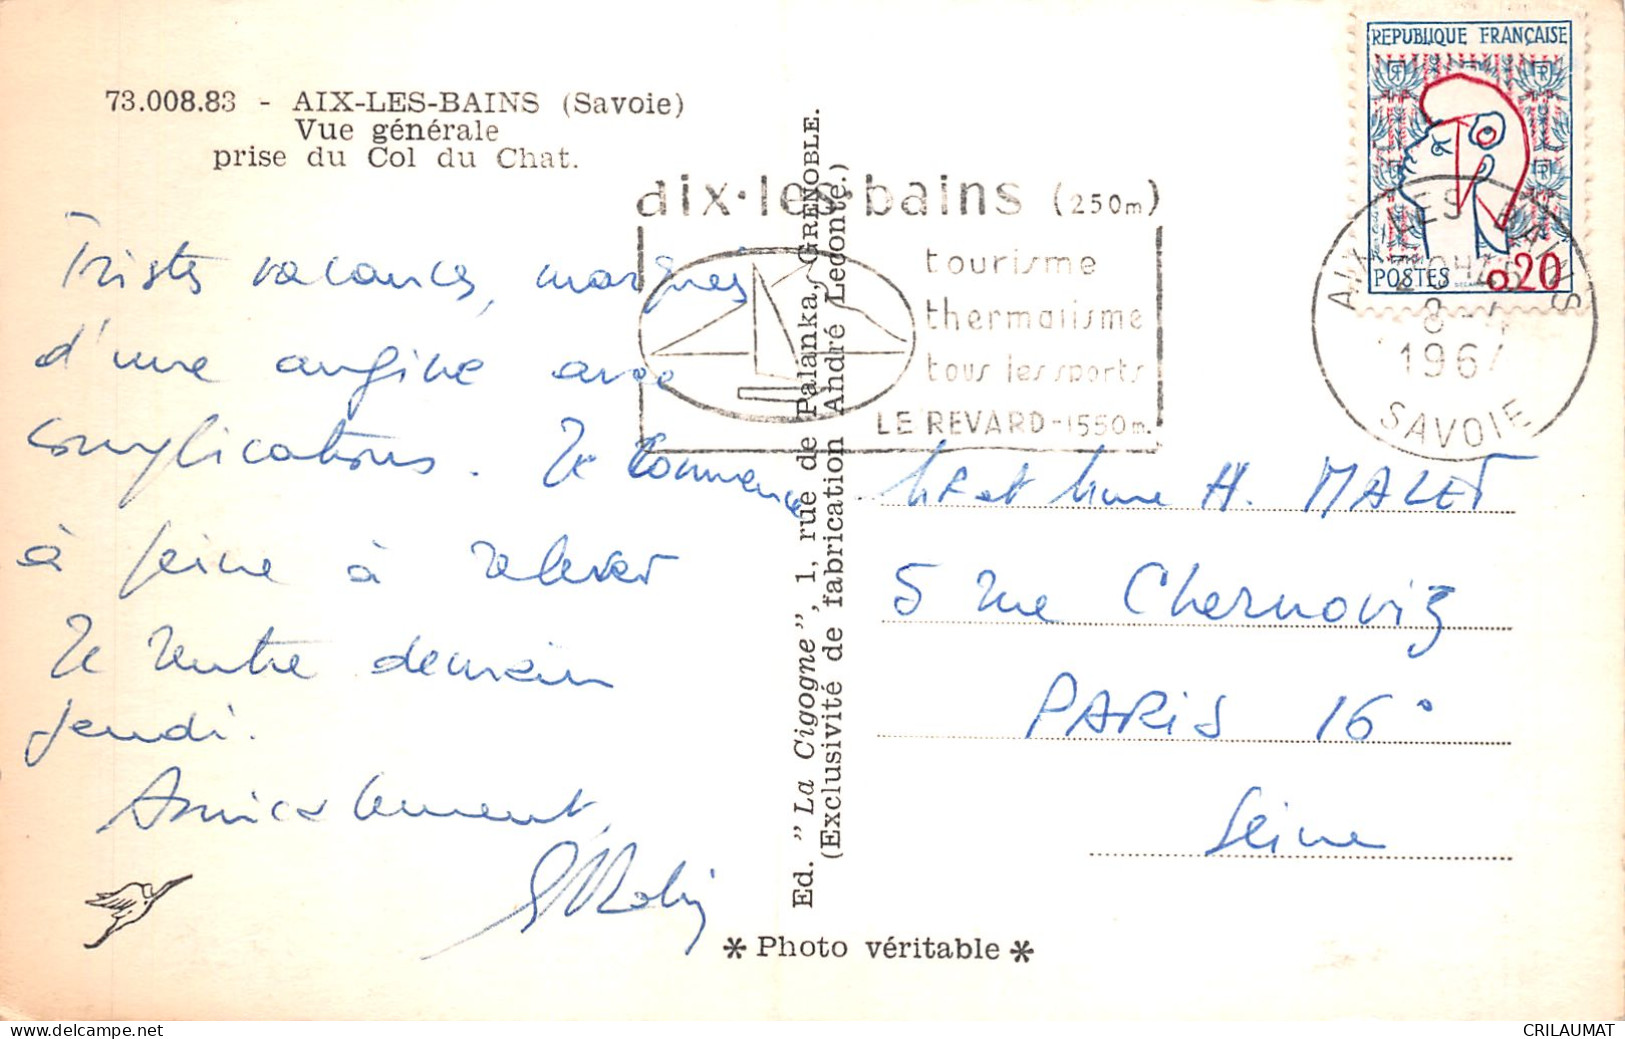 73.008.83 - AIX-LES-BAINS (Savoie)
Vue générale
prise du Col du Chat.
Tristes vacances, marquées
d'une angine avec
complications. Je commence
à peine à relever
Je rentre demain
jeudi.
Amicalement,
Ed. "La Cigogne", 1, rue de Palanka, GRENOBLE.
(Exclusivité de fabrication André Leconte.)
* Photo véritable *
aix·les·bains (250m)
tourisme
thermalisme
tous les sports
LE REVARD-1550m.
REPUBLIQUE FRANÇAISE
RF RF
POSTES 0,20
AIX LES BAINS
8-4
196
SAVOIE
Mr et Mme H. MALET
5 rue Chernoviz
PARIS 16°
Seine
CRILAUMAT